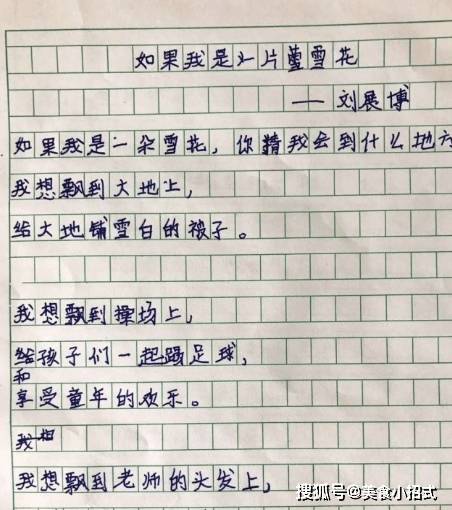 如果我是片雪花
——刘展博
如果我是一朵雪花，你猜我会到什么地方
我想飘到大地上，
给大地铺雪白的被子。
我想飘到操场上，
给孩子们一起踢足球，
和
享受童年的欢乐。
我想
我想飘到老师的头发上，
搜狐号@美食小招式